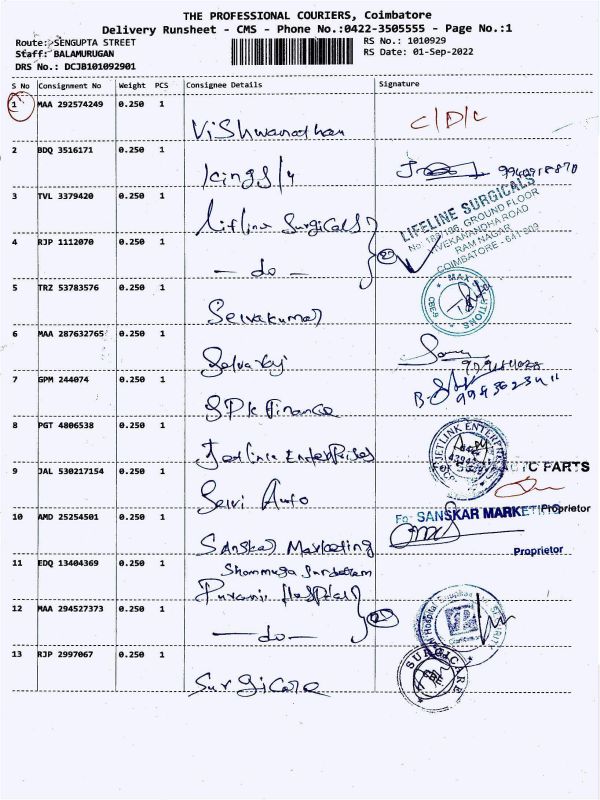 THE PROFESSIONAL COURIERS, Coimbatore
Delivery Runsheet - CMS - Phone No.:0422-3505555 - Page No.:1
Route: SENGUPTA STREET
RS No.: 1010929
Staff: BALAMURUGAN
RS Date: 01-Sep-2022
DRS No.: DCJB101092901
S No Consignment No Weight PCS Consignee Details Signature
1 MAA 292574249 0.250 1
Vishwanathan C/D/C
2 BDQ 3516171 0.250 1
Kingsly
3 TVL 3379420 0.250 1
Lifline Surgicals
LIFELINE SURGICALS
GROUND FLOOR
VIVEKANANDHA ROAD
RAM NAGAR
COIMBATORE - 641 009
4 RJP 1112070 0.250 1
— do — 2
5 TRZ 53783576 0.250 1
Selvakumar
MAX
CBE-9
6 MAA 287632765 0.250 1
Selvaraj
7 GPM 244074 0.250 1
SPK Finance
8 PGT 4806538 0.250 1
Jetlinc Enterprises
JETLINK ENTERPRISES
9 JAL 530217154 0.250 1
Selvi Auto
PARTS
Proprietor
10 AMD 25254501 0.250 1
Sanskar Marketing
For SANSKAR MARKETING
Proprietor
11 EDQ 13404369 0.250 1
Shanmuga Sundaram
Puranii Hospital
12 MAA 294527373 0.250 1
— do — 2
Hospital
SECURITY
13 RJP 2997067 0.250 1
Surgicare
SURGICARE
CBE